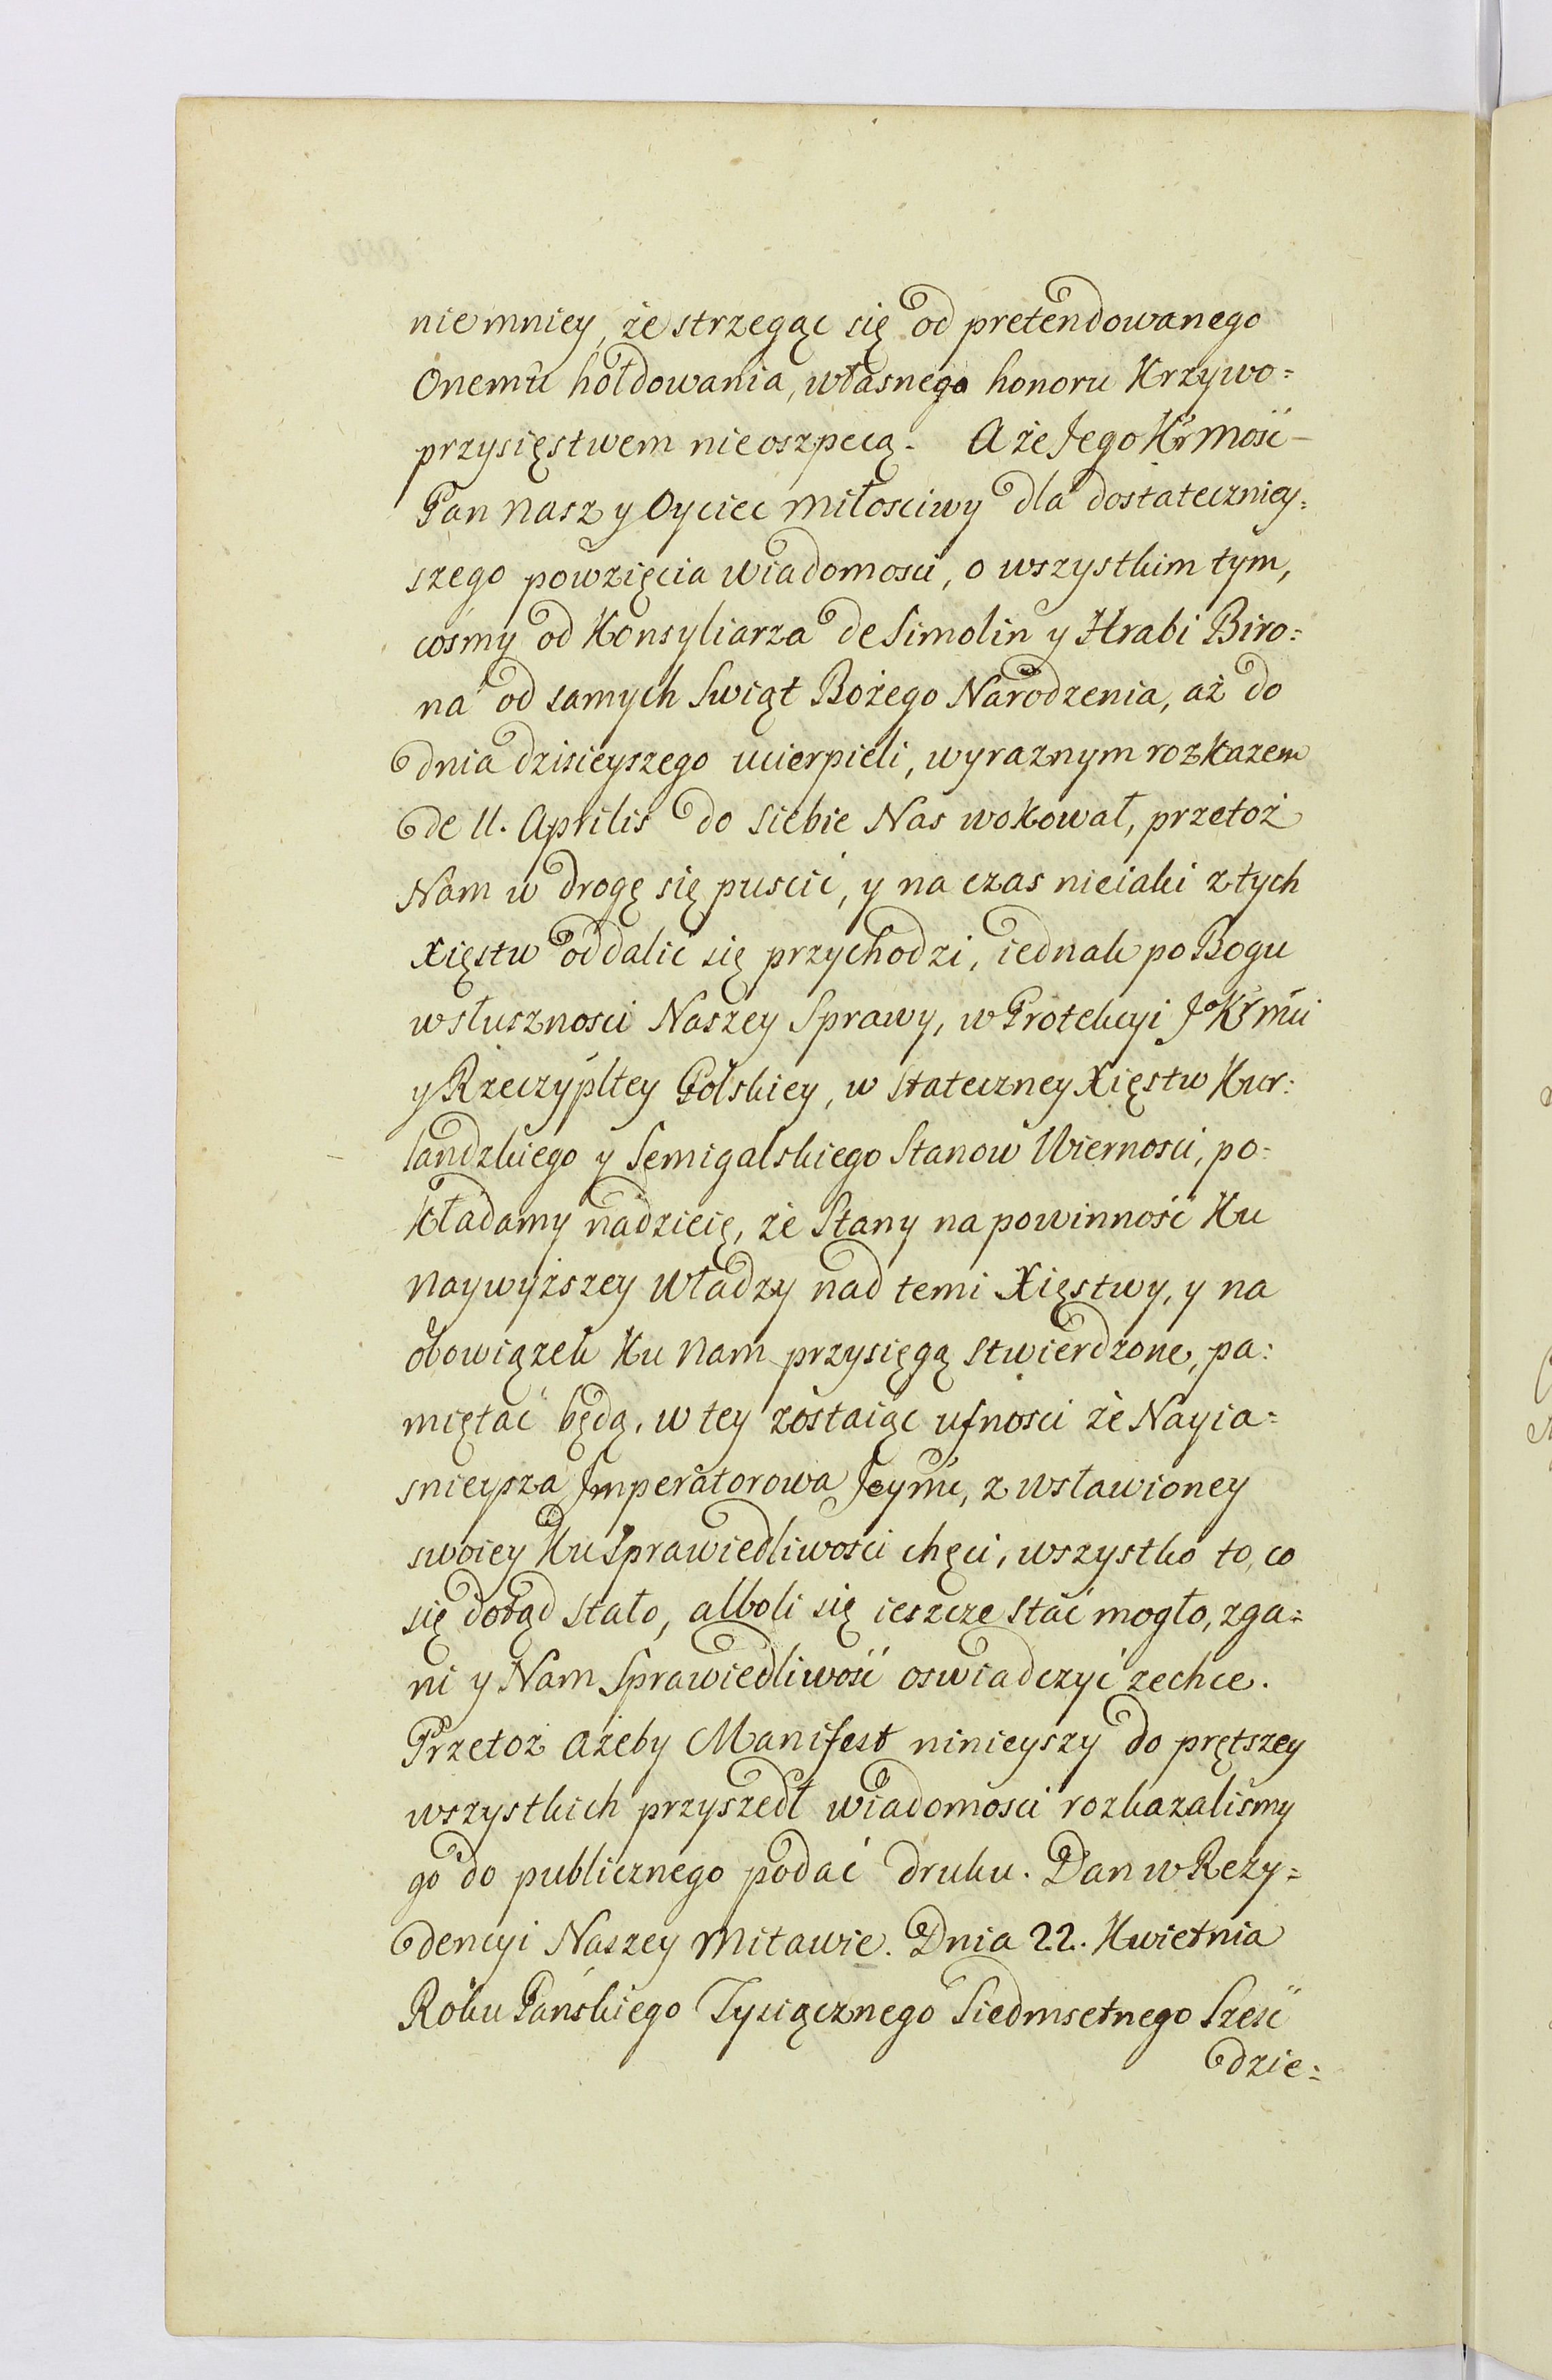 niemniey, że strzegąc się od pretendowanego
Onemu hołdowania, własnego honoru Krzywo=
przysięstwem nieoszpecą. A że Jego KrMość
Pan Nasz y Oyciec Miłosciwy dla dostateczniey=
szego powzięcia wiadomosci, o wszystkim tym,
cosmy od Konsyliarza de Simolin y Hrabi Biro=
na od samych Swiąt Bożego Narodzenia, aż do
dnia dzisieyszego ucierpieli, wyraznym rozkazem
de 11. Aprilis do siebie Nas wokował, przetoż
Nam w drogę się puscić, y na czas nieiaki z tych
Xięstw oddalić się przychodzi, iednak po Bogu
w słusznosci Naszey Sprawy, w Protekcyi JoKrMci
y Rzeczypltey Polskiey, w stateczney Xięstw Kur=
landzkiego y Semigalskiego Stanow Wiernosci, po=
kładamy nadzieię, że Stany na powinność Ku
Naywyższey Władzy nad temi Xięstwy, y na
obowiązek Ku Nam przysięgą stwierdzone, pa=
miętać będą, w tey zostaiąc ufnosci że Nayia=
snieysza Imperatorowa Jeymć, z wsławioney
swoiey Ku Sprawiedliwości chęci, wszystko to, co
się dotąd stało, alboli się ieszcze stać mogło, zga=
ni y Nam Sprawiedliwość oswiadczyć zechce.
Przetoż ażeby Manifest ninieyszy do prętszey
wszystkich przyszedł wiadomosci rozkazalismy
go do publicznego podać druku. Dan w Rezy=
dencyi Naszey Mitawie. Dnia 22. Kwietnia
Roku Pańskiego Tysiącznego Siedmsetnego Sześć
dzie=